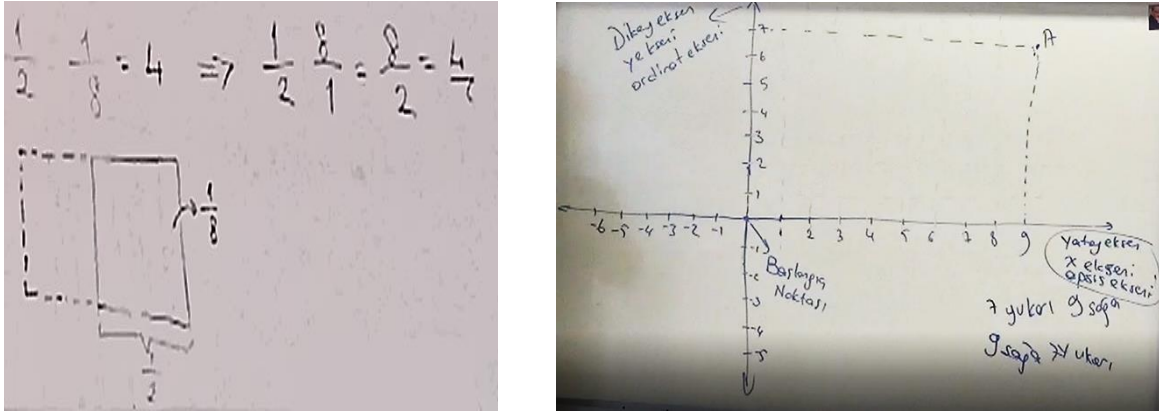 1/2 1/8 = 4 => 1/2 8/1 = 8/2 = 4/7
1/8
1/2
Dikey eksen
y ekseni
ordinat ekseni
A
7
6
5
4
3
2
1
-6 -5 -4 -3 -2 -1 1 2 3 4 5 6 7 8 9
-1
-2
-3
-4
-5
Başlangıç
Noktası
yatay eksen
x ekseni
apsis ekseni
7 yukarı 9 sağa
9 sağa 7 yukarı